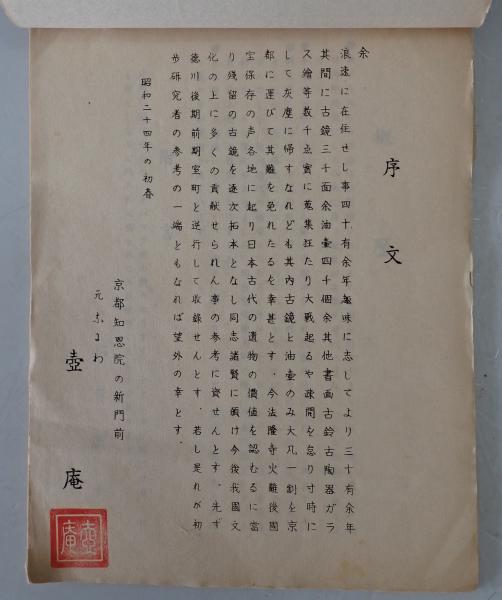 序文
余
浪速に在住せし事四十有余年趣味に志してより三十有余年
其間に古鏡三千面余油壷四千個余其他書画古鈴古陶器ガラ
ス繪等数千点實に蒐集狂たり大戦起るや疎開を怠り寸時に
して灰塵に帰すなれども其内古鏡と油壷のみ大凡一割を京
都に運びて其難を免れたるを幸甚とす、今法隆寺火難後國
宝保存の声各地に起り日本古代の遺物の價値を認むるに當
り残留の古鏡を逐次拓本となし同志諸賢に頒け今後我國文
化の上に多くの貢献せられん事の参考に資せんとす、先ず
徳川後期前期室町と逆行して收録せんとす、若し是れが初
歩研究者の参考の一端ともなれば望外の幸とす、
昭和二十四年の初春
京都知恩院の新門前
壺庵
壺庵